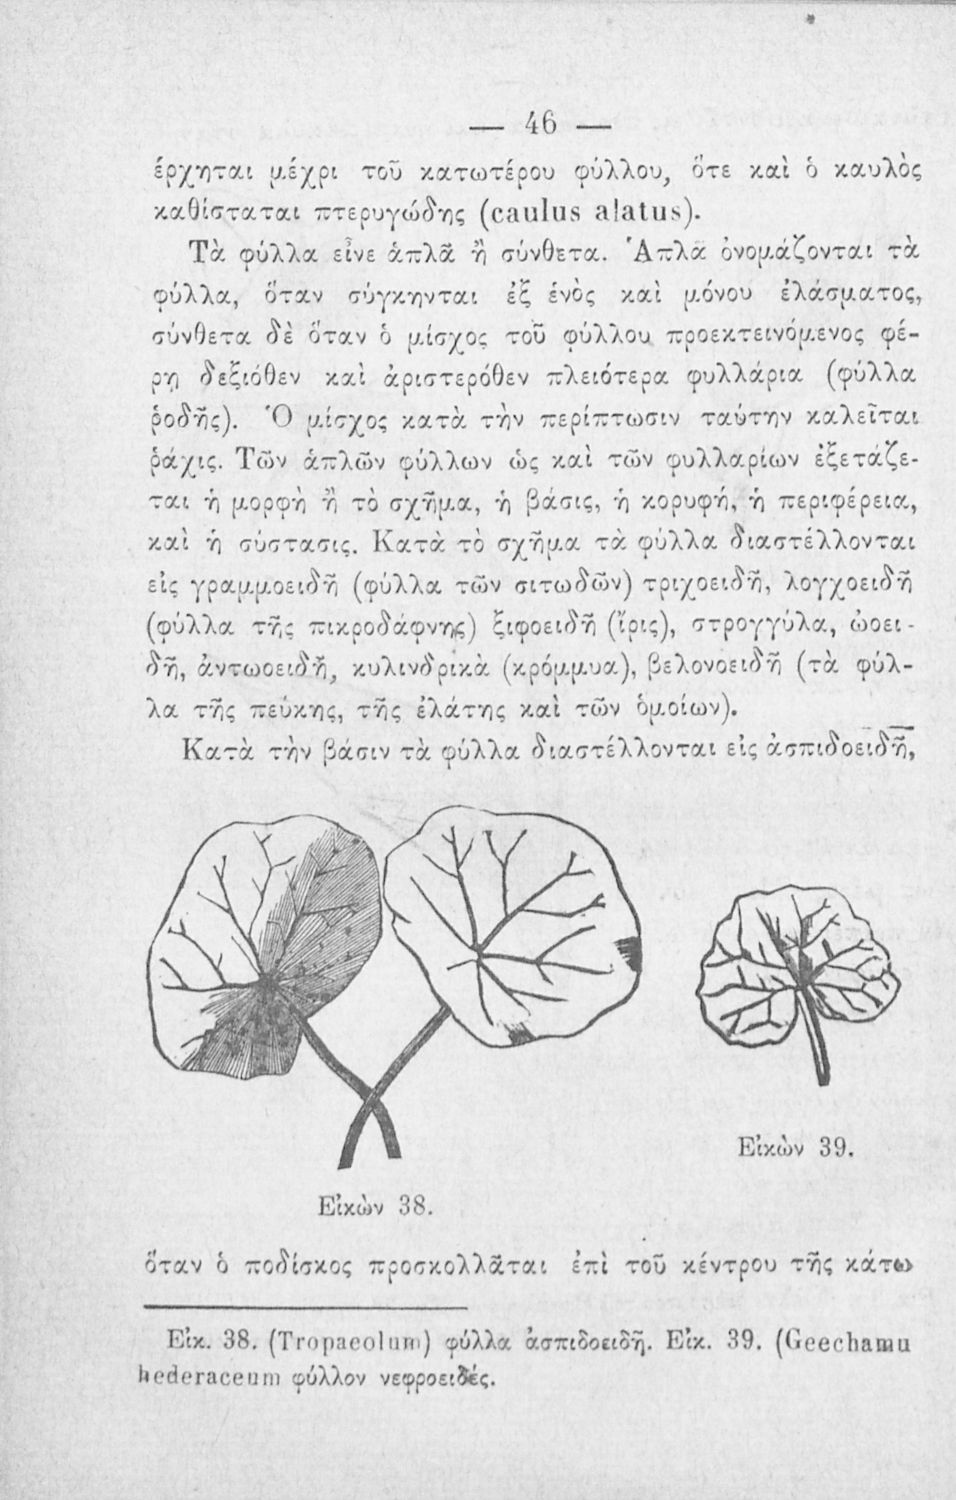 — 46 —
έρχηται μέχρι τοῦ κατωτέρου φύλλου, ὅτε καὶ ὁ καυλὸς
καθίσταται πτερυγώδης (caulus alatus).
Τὰ φύλλα εἶνε ἁπλᾶ ἢ σύνθετα. Ἁπλᾶ ὀνομάζονται τὰ
φύλλα, ὅταν σύγκηνται ἐξ ἑνὸς καὶ μόνου ἐλάσματος,
σύνθετα δὲ ὅταν ὁ μίσχος τοῦ φύλλου προεκτεινόμενος φέ-
ρῃ δεξιόθεν καὶ ἀριστερόθεν πλειότερα φυλλάρια (φύλλα
ῥοδῆς). Ὁ μίσχος κατὰ τὴν περίπτωσιν ταύτην καλεῖται
ῥάχις. Τῶν ἁπλῶν φύλλων ὡς καὶ τῶν φυλλαρίων ἐξετάζε-
ται ἡ μορφὴ ἢ τὸ σχῆμα, ἡ βάσις, ἡ κορυφή, ἡ περιφέρεια,
καὶ ἡ σύστασις. Κατὰ τὸ σχῆμα τὰ φύλλα διαστέλλονται
εἰς γραμμοειδῆ (φύλλα τῶν σιτωδῶν) τριχοειδῆ, λογχοειδῆ
(φύλλα τῆς πικροδάφνης) ξιφοειδῆ (ἴρις), στρογγύλα, ὠοει-
δῆ, ἀντωοειδῆ, κυλινδρικὰ (κρόμμυα), βελονοειδῆ (τὰ φύλ-
λα τῆς πεύκης, τῆς ἐλάτης καὶ τῶν ὁμοίων).
Κατὰ τὴν βάσιν τὰ φύλλα διαστέλλονται εἰς ἀσπιδοειδῆ,
Εἰκὼν 39.
Εἰκὼν 38.
ὅταν ὁ ποδίσκος προσκολλᾶται ἐπὶ τοῦ κέντρου τῆς κάτω
Εἰκ. 38. (Tropaeolum) φύλλα ἀσπιδοειδῆ. Εἰκ. 39. (Geechamu
hederaceum φύλλον νεφροειδές.